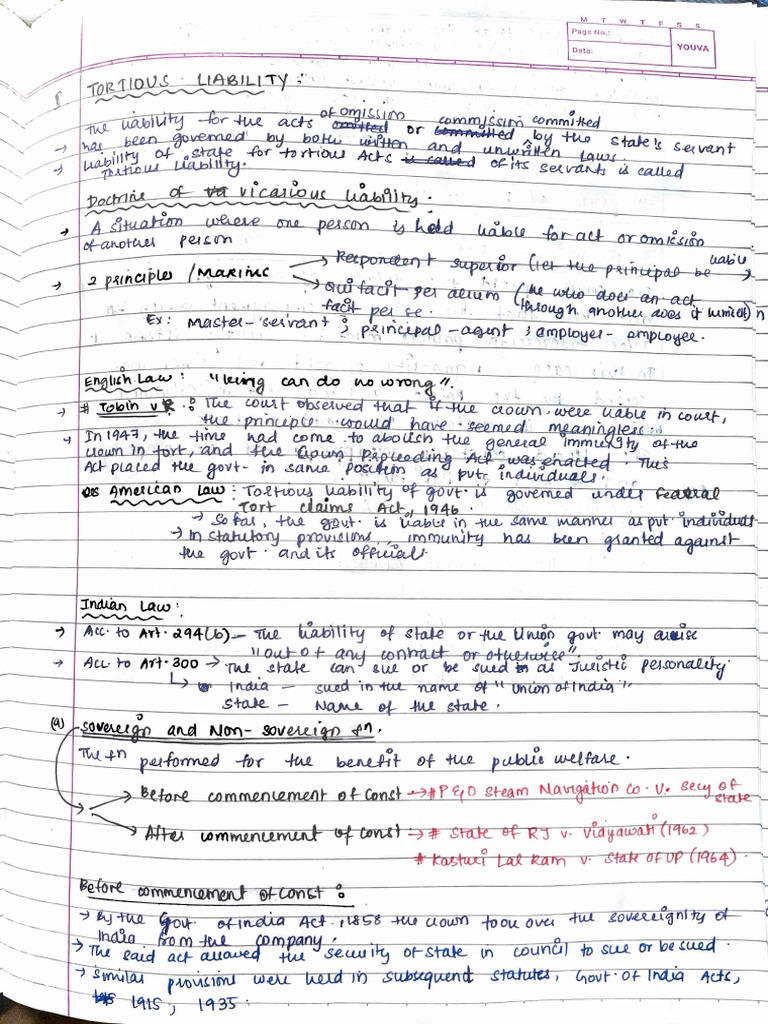 M T W T F S S
Page No.:
Date:
YOUVA
TORTIOUS LIABILITY :
of omission commission committed
The liability for the acts omitted or committed by the state's servant
→ has been governed by both written and unwritten laws.
→ liability of state for tortious Acts is called of its servants is called
Tortious liability.
Doctrine of vicarious liability :
→ A situation where one person is held liable for act or omission
of another person
→ 2 principles / Maxims → Respondent superior (let the principal be liable
→ Qui facit per alium (he who does an act
facit per se. through another does it himself)
Ex: Master-servant ; principal-agent ; employer-employee.
English Law : "king can do no wrong".
→ # Tobin v R. : The court observed that if the crown were liable in court,
the principle would have seemed meaningless.
→ In 1947, the time had come to abolish the general immunity of the
crown in tort, and the Crown Proceeding Act was enacted. This
Act placed the govt. in same position as pvt. individuals.
American Law : Tortious liability of govt. is governed under federal
Tort claims Act, 1946.
→ So far, the govt. is liable in the same manner as pvt. individuals
→ In statutory provisions, immunity has been granted against
the govt. and its officials.
Indian Law :
→ Acc. to Art. 294(b) - The liability of state or the Union govt may arise
"out of any contract or otherwise".
→ Acc to Art. 300 → The state can sue or be sued as Juristic personality
India - sued in the name of "Union of India"
State - Name of the state.
(a) Sovereign and Non-sovereign fn.
The fn performed for the benefit of the public welfare.
→ Before commencement of Const → # P&O Steam Navigation Co. v. Secy of
state
→ After commencement of Const → # State of RJ v. Vidyawati (1962)
# Kasturi Lal Ram v. State of UP (1964).
Before commencement of Const :
→ By the Govt. of India Act, 1858 the crown took over the sovereignity of
India from the company.
→ The said act allowed the security of state in council to sue or be sued.
→ Similar provisions were held in subsequent statutes, Govt. of India Acts,
1915, 1935.